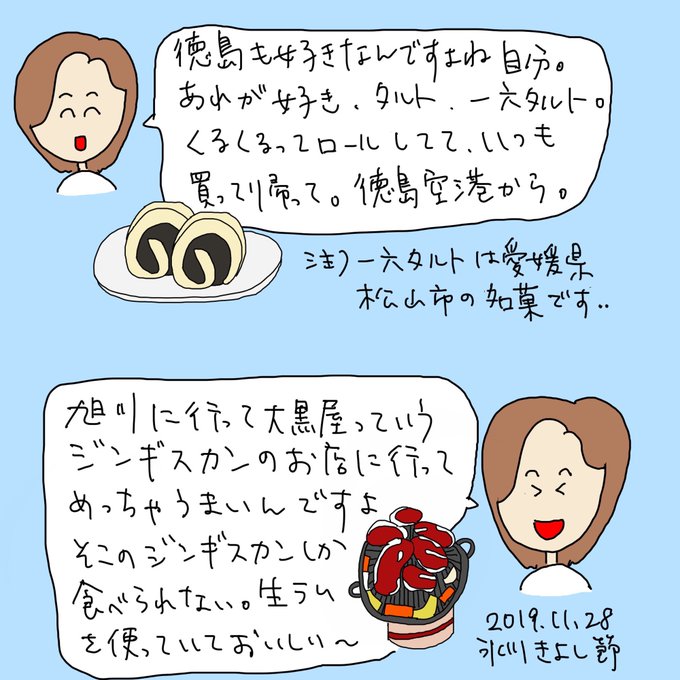 徳島も好きなんですよね自分。
あれが好き、タルト、一六タルト。
くるくるってロールしてて、いつも
買って帰って。徳島空港から。
注)一六タルトは愛媛県
松山市の名菓です..
旭川に行って大黒屋っていう
ジンギスカンのお店に行って
めっちゃうまいんですよ
そこのジンギスカンしか
食べられない。生ラム
を使っていておいしい〜
2019.11.28
氷川きよし節